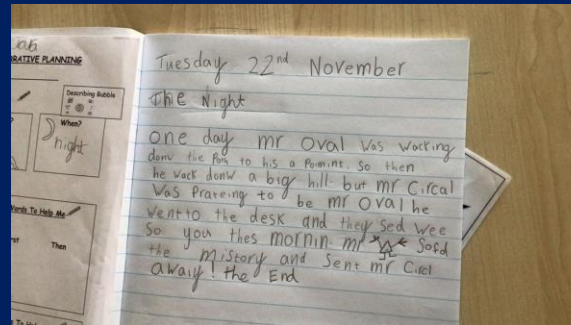 RATIVE PLANNING
Describing Bubble
When?
night
Words To Help Me
Then
Tuesday 22nd November
The Night
one day mr Oval was worcing
donw the Path to his a Poimint. So then
he wack donw a big hill. but mr Circal
Was Prateing to be mr oval he
went to the desk and they sed wee
So you thes mornin mr sofd
the mistory and Sent mr Circl
away! the End